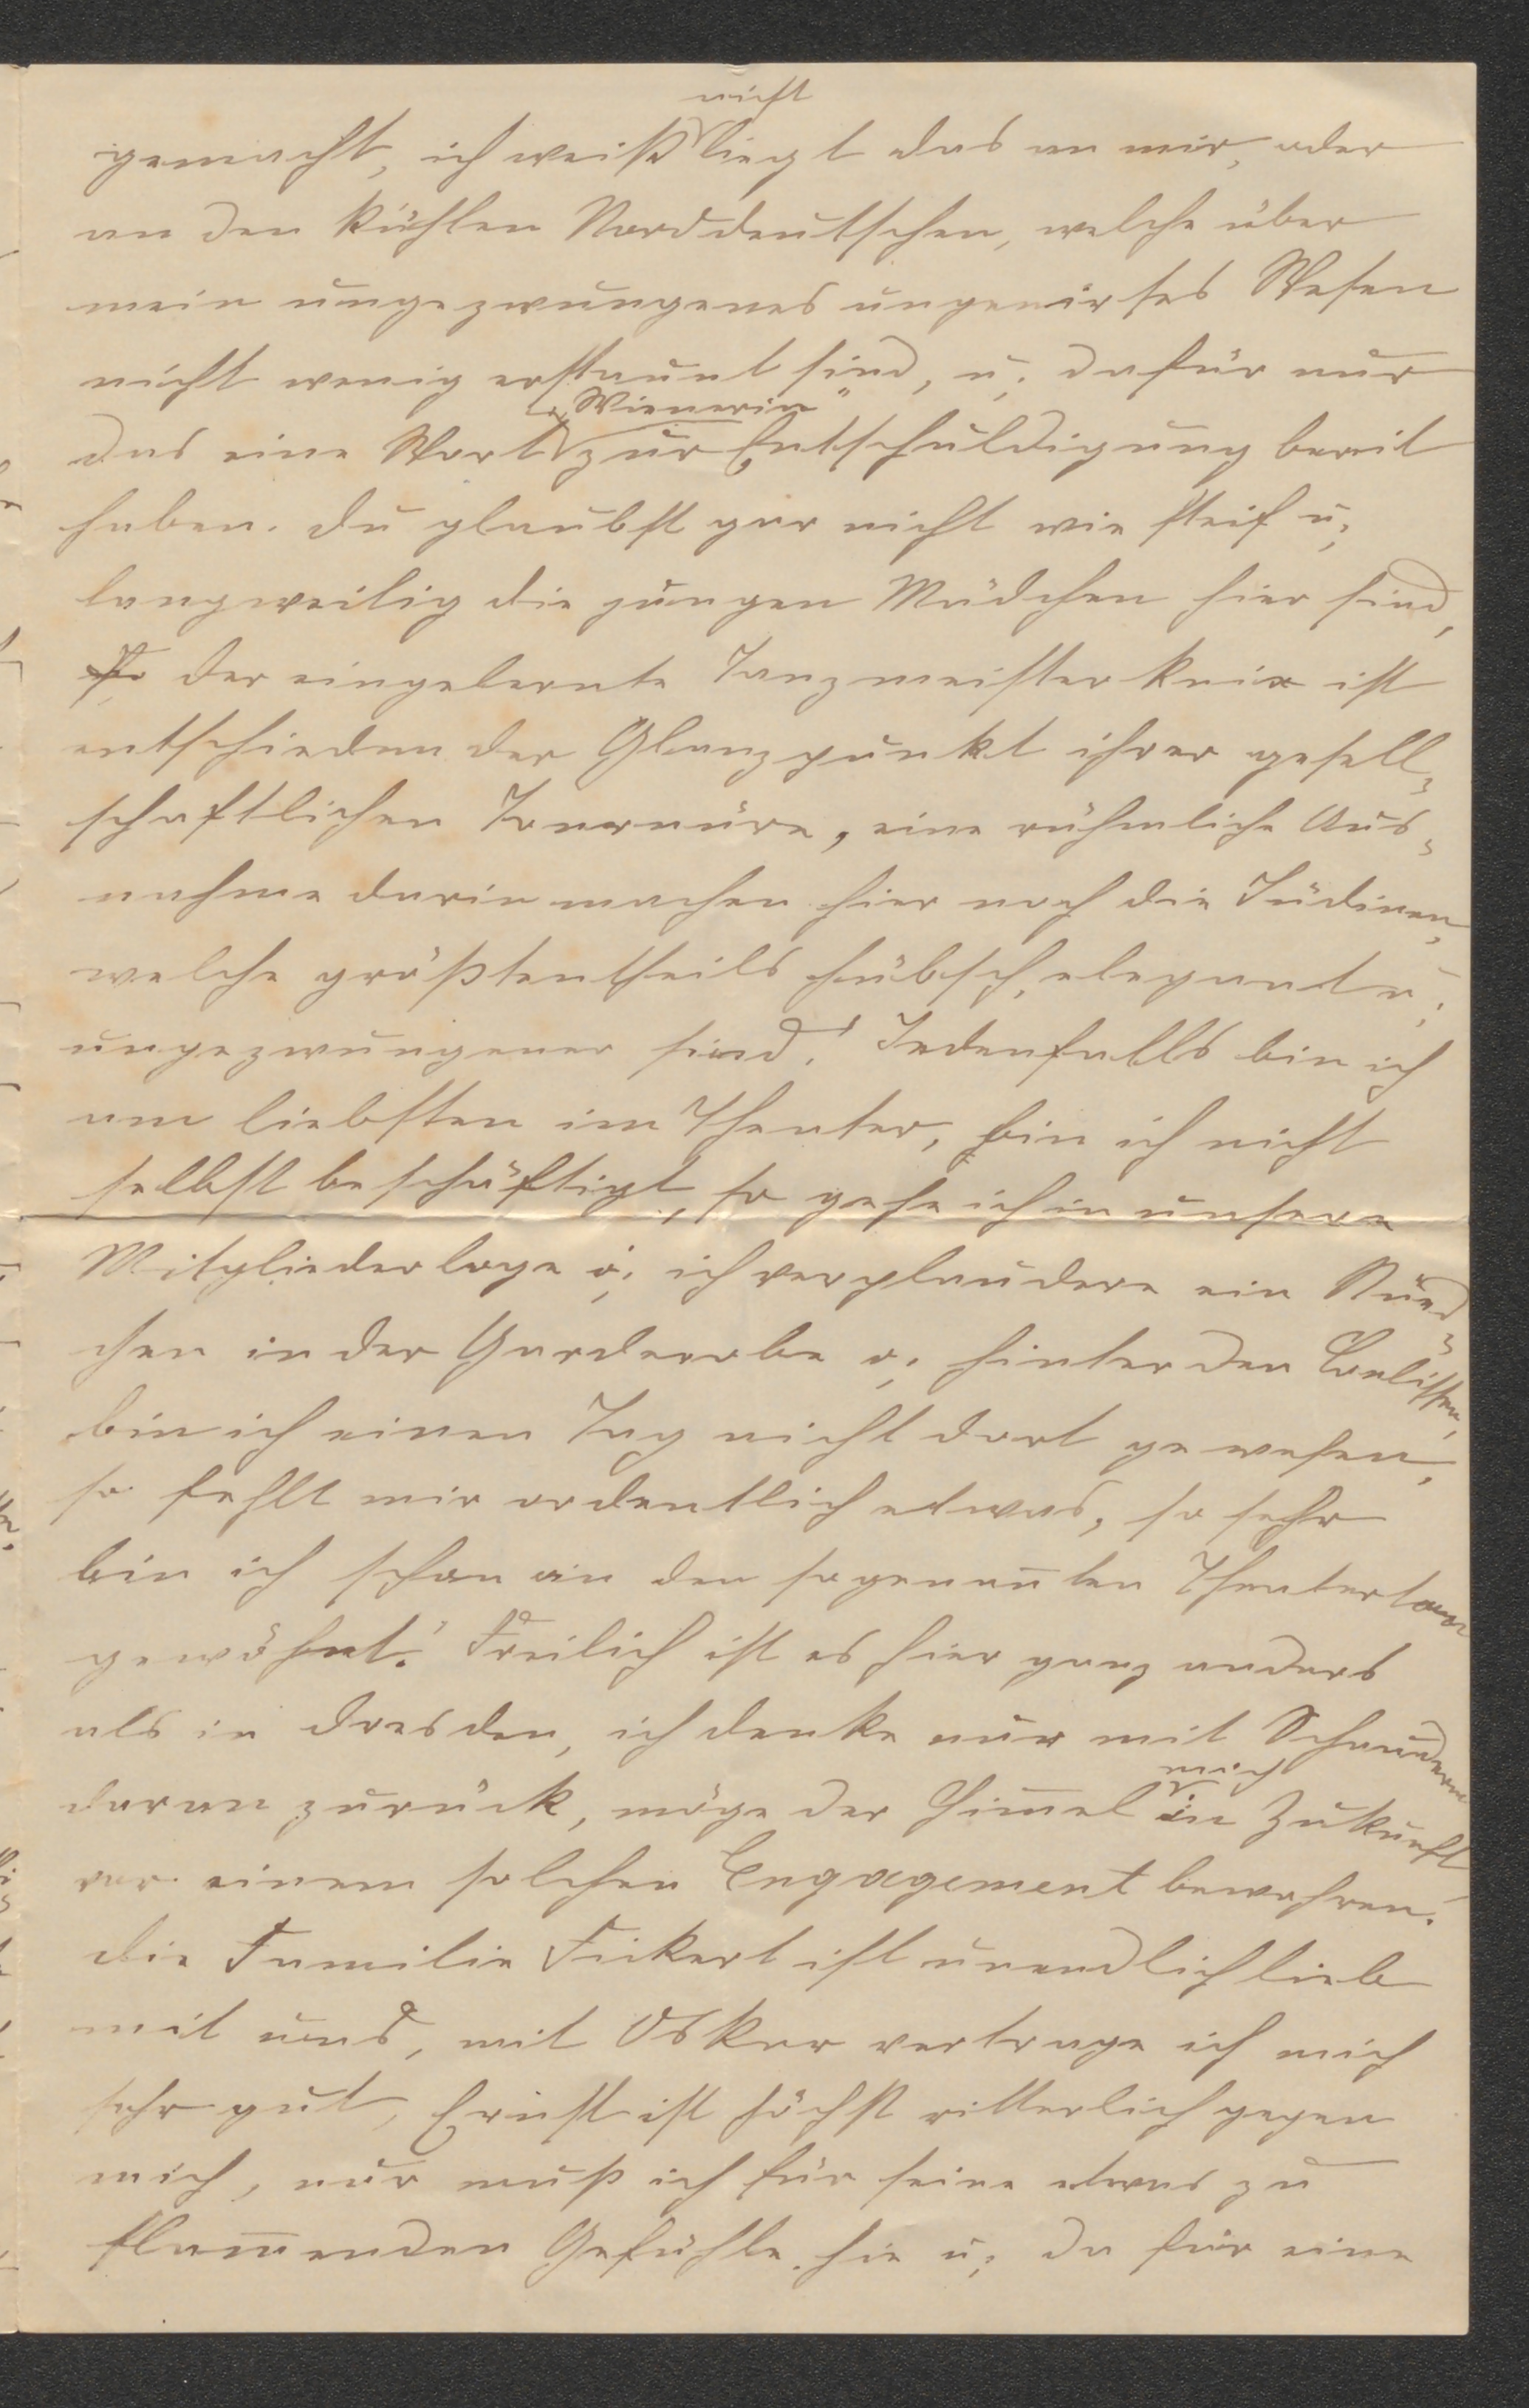 nicht
gemacht, ich weiß liegt das an mir, oder
an den kühlen Norddeutschen, welche über
mein ungezwungenes ungenirtes Wesen
nicht wenig erstaunt sind, u; dafür nur
„Wienerin"
das eine Wort zur Entschuldigung bereit
haben. Du glaubst gar nicht wie steif u;
langweilig die jungen Mädchen hier sind,
der eingelernte Tanzmeisterknix ist
entschieden der Glanzpunkt ihrer gesell=
schaftlichen Tournüre, eine rühmliche Aus=
nahme darin machen hier noch die Jüdinen,
welche größtentheils hübsch, elegant u;
ungezwungener sind! Jedenfalls bin ich
am liebsten im Theater, bin ich nicht
selbst beschäftigt, so gehe ich in unsere
Mitgliederloge o; ich verplaudere ein Stünd=
chen in der Garderobe o; hinter den Coulissen,
bin ich einen Tag nicht dort gewesen,
so fehlt mir ordentlich etwas, so sehr
bin ich schon an den sogenan̄ten
gewöhnt! Freilich ist es hier ganz anders
als in Dresden, ich denke nur mit Schaudern
mich
daran zurück, möge der Him̄el in Zukunft
vor einem solchen Engagement bewahren!
Die Familie Fickert ist unendlich lieb
mit uns, mit Oskar vertrage ich mich
sehr gut, Ernst ist höchst ritterlich gegen
mich, nur muß ich für seine etwas zu
flam̄enden Gefühle hie u; da für eine